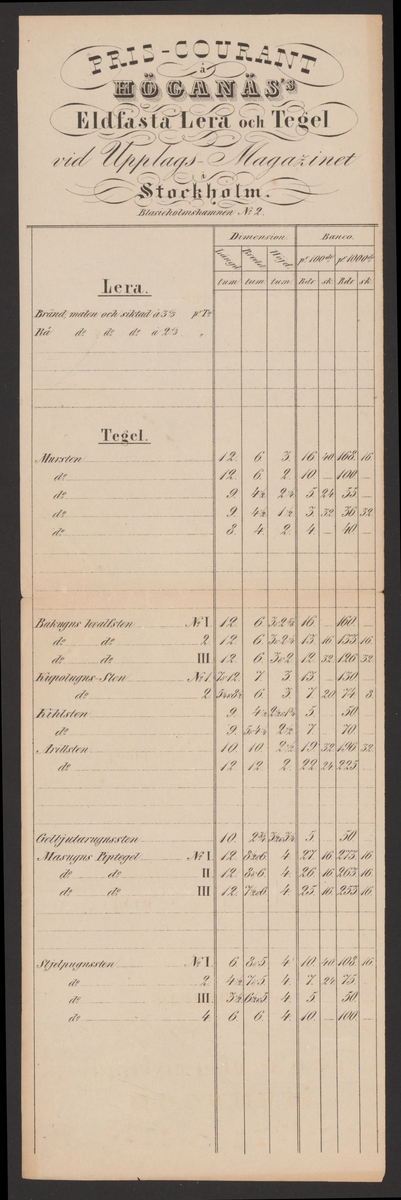 PRIS-COURANT
å
HÖGANÄS'S
Eldfasta Lera och Tegel
vid Upplags-Magazinet
i
Stockholm.
Blasieholmshamnen No 2.
Dimension. Banco.
Längd Bredd Höjd pr 100de pr 1000de
tum tum tum Rdr sk. Rdr sk.
Lera.
Bränd, malen och siktad à 3 pr Ta
Rå do do do à 2 „
Tegel.
Mursten 12. 6 3. 16 40 168. 16
do 12. 6. 2. 10 — 100 —
do 9 4½ 2½ 5 24 55 —
do 9. 4½ 1½ 3 32 36 32
do 8. 4. 2. 4. — 40 —
Bakugns hvalfsten No I. 12. 6 16 — 160 —
do do 2 12 6 13 16 133 16
do do III. 12 6 3o2 12 32 126 32
Kupolugns-Sten No 1 7o12. 7 3 13 — 130 —
do 2 6 3. 7 20 74 8.
Kihlsten 9. 4½ 5 — 50 —
do 9. 2½ 7 — 70 —
Arillsten 10 10. 2½ 19 32 196 32
do 12 12. 2. 22 24 225 —
Gelbjutarugnssten 10. 2¾ 5 — 50 —
Masugns Piptegel No I. 12 8o6 4. 27 16 273 16
do do II 12 8o6 4. 26 16 263 16
do do III 12. 7½o6 4. 25 16 253 16
Stjelpugnssten No 1. 6 8o5 4. 10 40 108 16
do 2 4½ 7o5 4. 7. 24 75 —
do III. 3½ 6o5 4. 5 — 50 —
do 4 6 6. 4. 10. — 100 —